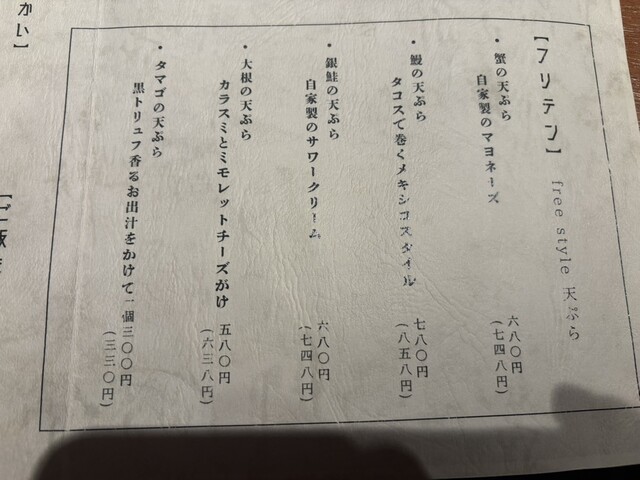 【フリテン】 free style 天ぷら
・蟹の天ぷら
自家製のマヨネーズ
六八〇円
（七四八円）
・鰻の天ぷら
タコスで巻くメキシコスタイル
七八〇円
（八五八円）
・銀鮭の天ぷら
自家製のサワークリーム
六八〇円
（七四八円）
・大根の天ぷら
カラスミとミモレットチーズがけ
五八〇円
（六三八円）
・タマゴの天ぷら
黒トリュフ香るお出汁をかけて 一個三〇〇円
（三三〇円）
かい】